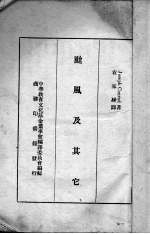 Joseph Conrad 著
袁家驊 譯
颱風及其它
中華教育文化基金董事會編譯委員會編輯
商務印書館發行